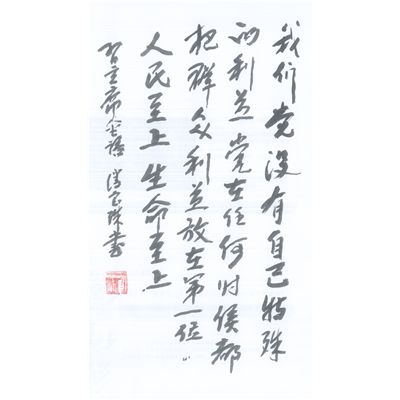 我们党没有自己特殊
的利益党在任何时候都
把群众利益放在第一位"
人民至上生命至上
习主席金语 清宝珠书